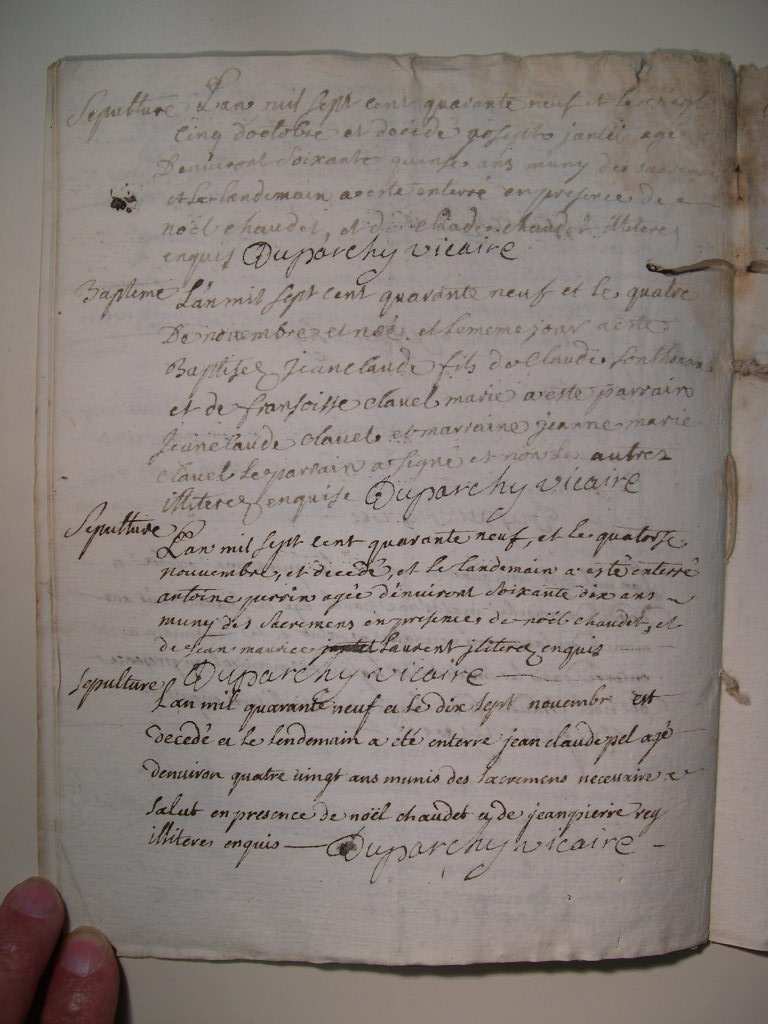 Sepulture L'an mil sept cent quarante neuf et le vingt
cinq d'octobre et décédé joseph jantet agé
D'enuiront soixante quinse ans muny des sacremens
et le landemain a esté enterré en presence de
noël chaudet, et de claude chaudet illiteres
enquis Duparchy vicaire
Baptême L'an mil sept cent quarante neuf et le quatre
De novembre et néé et le meme jour a esté
Baptisé jean claude fils de Claude
et de fransoisse clauel marié a esté parrain
jean claude clauel et marraine jeanne marie
clauel le parrain a signé et non les autres
illiterez enquise Duparchy vicaire
Sepulture L'an mil sept cent quarante neuf, et le quatorse
nouuembre, et décédé, et le landemain a esté enterré
antoine perrin agée d'enuiront soixante dix ans
muny des sacremens en presence de noël chaudet, et
de jean maurice Laurent jliterez enquis
Duparchy vicaire
sepulture L'an mil quarante neuf et le dix sept novembre est
Decedé et le lendemain a été enterre jean claude pel agé
denuiron quatre vingt ans munis des sacremens necessaire a
salut en presence de noël chaudet et de jean pierre rey
illiteres enquis Duparchy vicaire